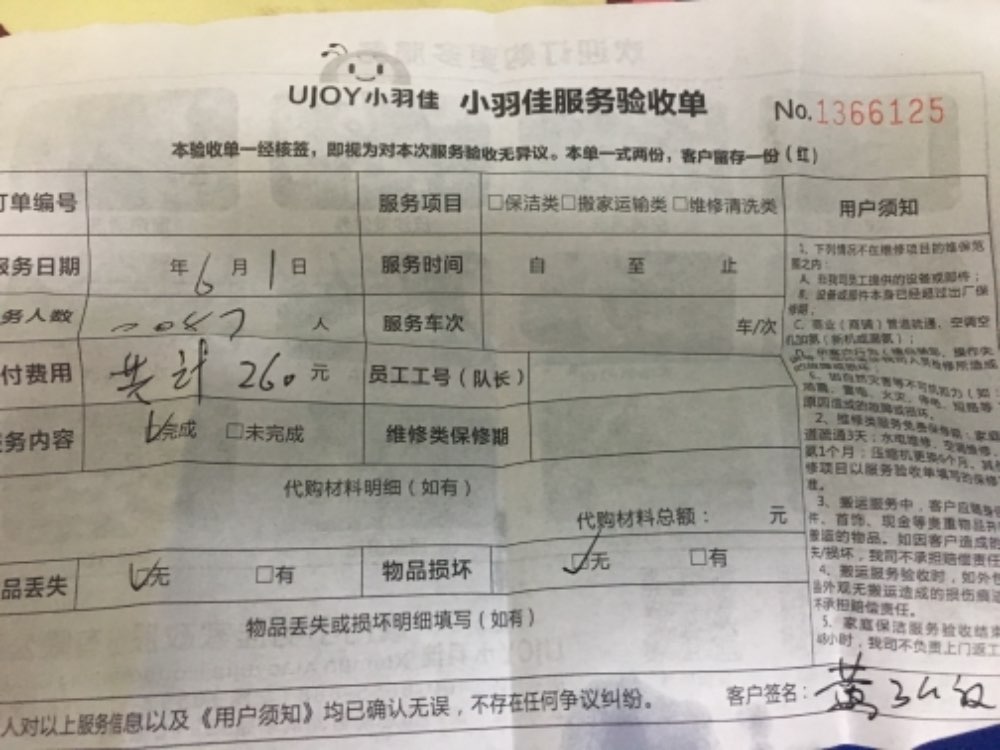 UJOY小羽佳 小羽佳服务验收单 No.1366125
本验收单一经核签，即视为对本次服务验收无异议。本单一式两份，客户留存一份（红）
订单编号 服务项目 □保洁类□搬家运输类□维修清洗类 用户须知
服务日期 年6月1日 服务时间 自 至 止
务人数 人 服务车次 车/次
付费用 共计 260元 员工工号（队长）
务内容 完成 □未完成 维修类保修期
代购材料明细（如有）
代购材料总额： 元
品丢失 无 □有 物品损坏 □无 □有
物品丢失或损坏明细填写（如有）
人对以上服务信息以及《用户须知》均已确认无误，不存在任何争议纠纷。 客户签名：黄
1、下列情况不在维修项目的维保范
围之内：
A、非我司员工提供的设备或部件；
B、设备或部件本身已经超过出厂保
修期。
C、商业（商铺）管道疏通、空调空
机加氨（新机或漏氨）；
地震、雷电、火灾、停电、短路等
原因造成的故障或损坏。
2、维修类服务免费保修期：家庭
道疏通3天；水电维修、空调维修、
氨1个月；压缩机更换6个月，其
修项目以服务验收单填写的保修
准。
3、搬运服务中，客户应随身
件、首饰、现金等贵重物品并
搬运的物品。如因客户造成的
失/损坏，我司不承担赔偿责任
4、搬运服务验收时，如外包
品外观无搬运造成的损伤痕迹
不承担赔偿责任。
5、家庭保洁服务验收结束
48小时，我司不负责上门返工